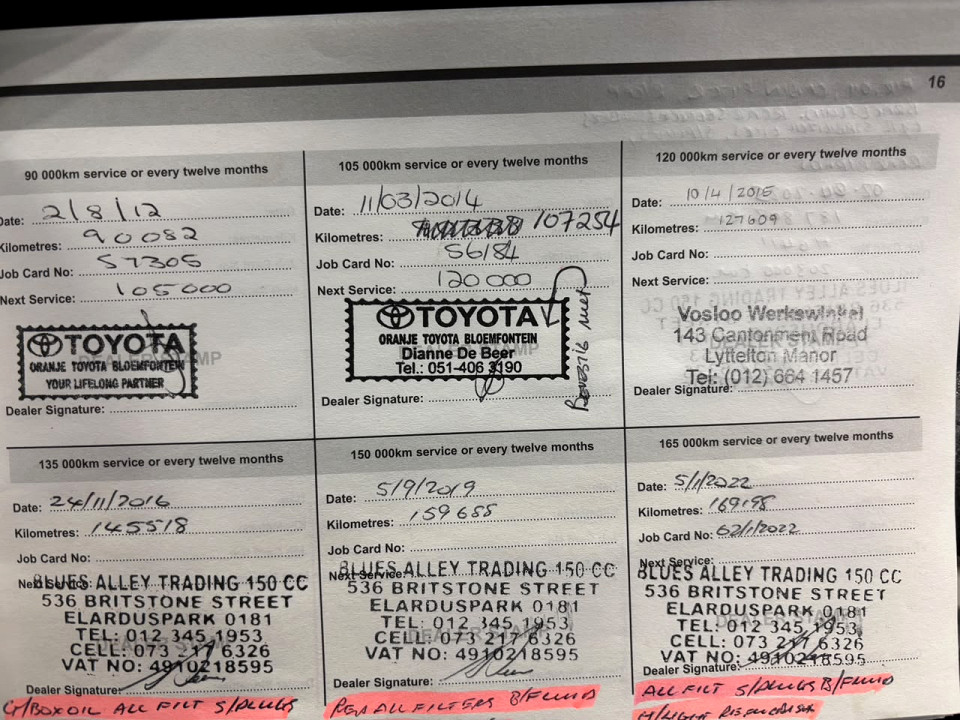 16
90 000km service or every twelve months
Date: 2/8/12
Kilometres: 90082
Job Card No: 57305
Next Service: 105000
TOYOTA
ORANJE TOYOTA BLOEMFONTEIN
YOUR LIFELONG PARTNER
DEALER STAMP
Dealer Signature:
105 000km service or every twelve months
Date: 11/03/2014
Kilometres: 107254
Job Card No: 56184
Next Service: 120000
TOYOTA
ORANJE TOYOTA BLOEMFONTEIN
Dianne De Beer
Tel.: 051-406 3190
Dealer Signature:
120 000km service or every twelve months
Date: 10/4/2015
Kilometres: 127609
Job Card No:
Next Service:
Vosloo Werkswinkel
143 Cantonment Road
Lyttelton Manor
Tel: (012) 664 1457
Dealer Signature:
135 000km service or every twelve months
Date: 24/11/2016
Kilometres: 145518
Job Card No:
Next Service:
BLUES ALLEY TRADING 150 CC
536 BRITSTONE STREET
ELARDUSPARK 0181
TEL: 012 345 1953
CELL: 073 217 6326
VAT NO: 4910218595
Dealer Signature:
G/BOXOIL ALL FILT S/PLUGS
150 000km service or every twelve months
Date: 5/9/2019
Kilometres: 159655
Job Card No:
Next Service:
BLUES ALLEY TRADING 150 CC
536 BRITSTONE STREET
ELARDUSPARK 0181
TEL: 012 345 1953
CELL: 073 217 6326
VAT NO: 4910218595
Dealer Signature:
ALL FILTERS B/FLUID
165 000km service or every twelve months
Date: 5/1/2022
Kilometres: 169198
Job Card No: 62/1/2022
Next Service:
BLUES ALLEY TRADING 150 CC
536 BRITSTONE STREET
ELARDUSPARK 0181
TEL: 012 345 1953
CELL: 073 217 6326
VAT NO: 4910218595
Dealer Signature:
ALL FILT S/PLUGS B/FLUID
H/LIGHT